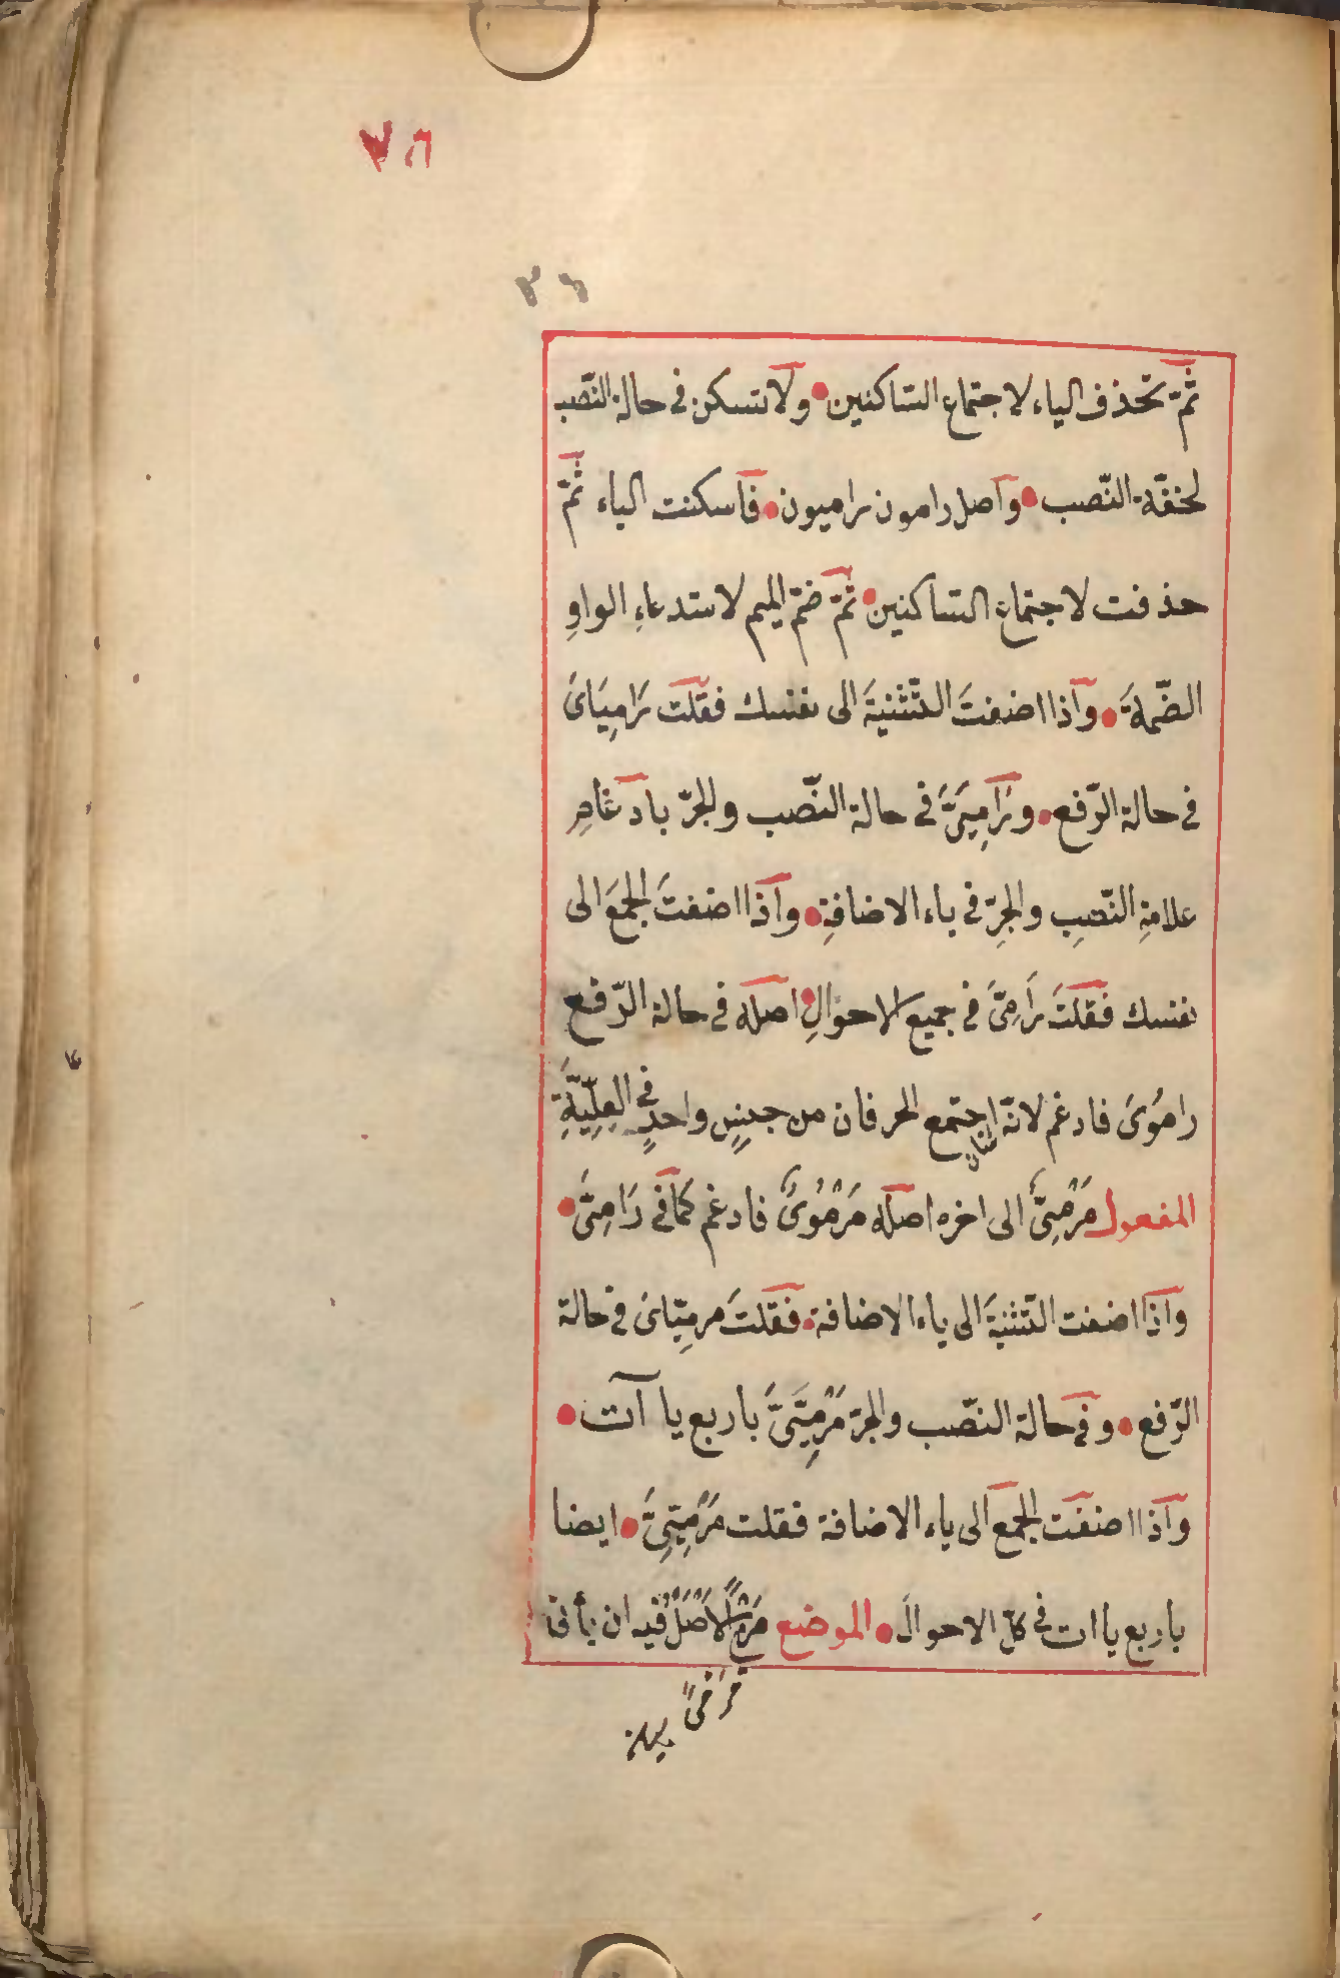 ٧٦
٣٦
ثمّ تحذف الياء لاجتماع السّاكنين ولا تسكن فى حالة النّصب
لخفّة النّصب واصل رامون راميون فاسكنت الياء ثمّ
حذفت لاجتماع السّاكنين ثمّ ضمّ الميم لاستدعاءِ الواوِ
الضّمةَ واذا اضفتَ التّثنيةَ الى نفسك فقلت رَامِيَاىَ
فى حالة الرّفع ورَامِيَىَّ فى حالة النّصب والجرّ بادغامِ
علامةِ النّصبِ والجرِّ فى ياء الاضافةِ واذا اضفتَ الجمعَ الى
نفسك فقلتَ رَامِىَّ فى جميع الاحوالِ اصله فى حالة الرّفع
رامُوىَ فادغم لانّه اجتمع الحرفان من جنسٍ واحدٍ فى العِلِّيَّةِ
المفعول مَرْمِىٌّ الى اخره اصله مَرْمُوىٌ فادغم كما فى رَامِىَّ
واذا اضفت التّثنيةَ الى ياء الاضافة فقلتَ مرمِيّاىَ فى حالة
الرّفع وفى حالة النّصب والجرّ مَرْمِيَّىَّ باربع ياآت
واذا اضفت الجمع الى ياء الاضافة فقلت مَرْمِيِّىَّ ايضا
باربع ياات فى كلّ الاحوال الموضع مَرْمىً الاَصْلُ فيه ان يأتى
مَرْمىً